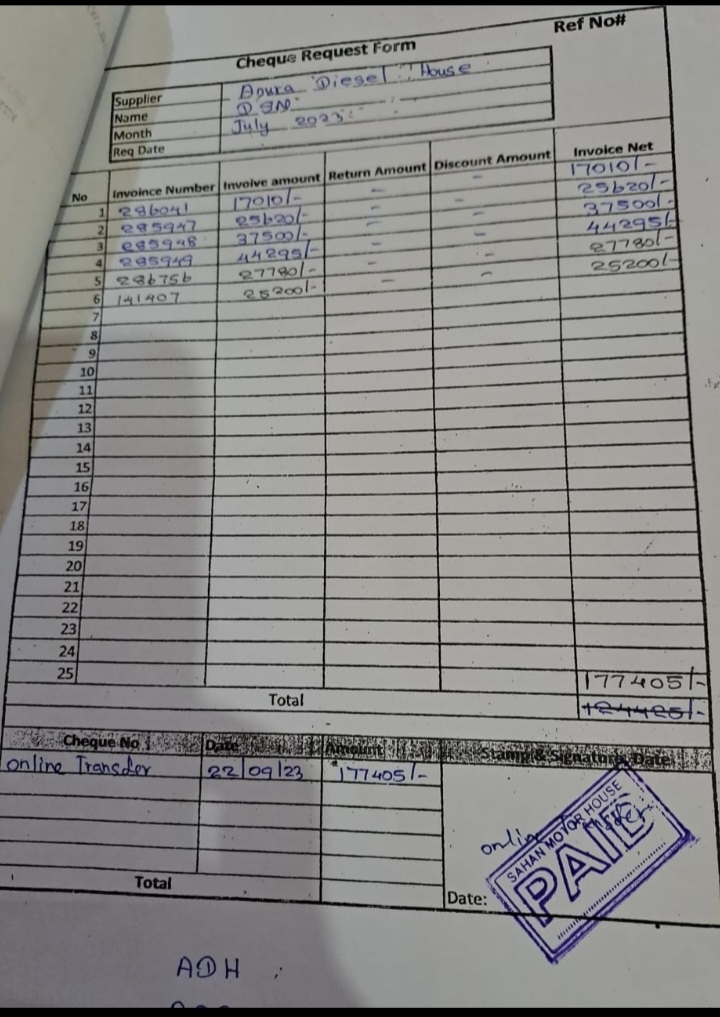 Ref No#
Cheque Request Form
Supplier Apura Diesel House
Name
Month July 2023
Req Date
No Invoince Number Invoive amount Return Amount Discount Amount Invoice Net
1 286041 17010/- - - 17010/-
2 285947 25620/- - - 25620/-
3 285948 37500/- - - 37500/-
4 285949 44295/- - - 44295/-
5 286756 27780/- - - 27780/-
6 141407 25200/- - - 25200/-
7
8
9
10
11
12
13
14
15
16
17
18
19
20
21
22
23
24
25 177405/-
Total 124425/-
Cheque No : Date Amount Stamp & Signature, Date:
online Transder 22/09/23 177405/-
SAHAN MOTOR HOUSE
PAID
Total
Date:
ADH